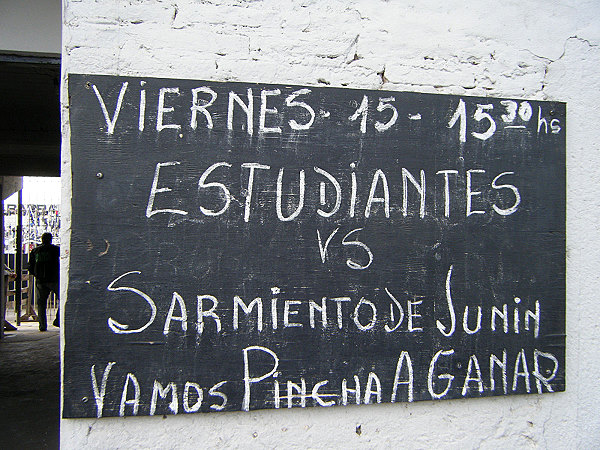 VIERNES - 15 - 15 30 hs
ESTUDIANTES
VS
SARMIENTO DE JUNIN
VAMOS PINCHA A GANAR